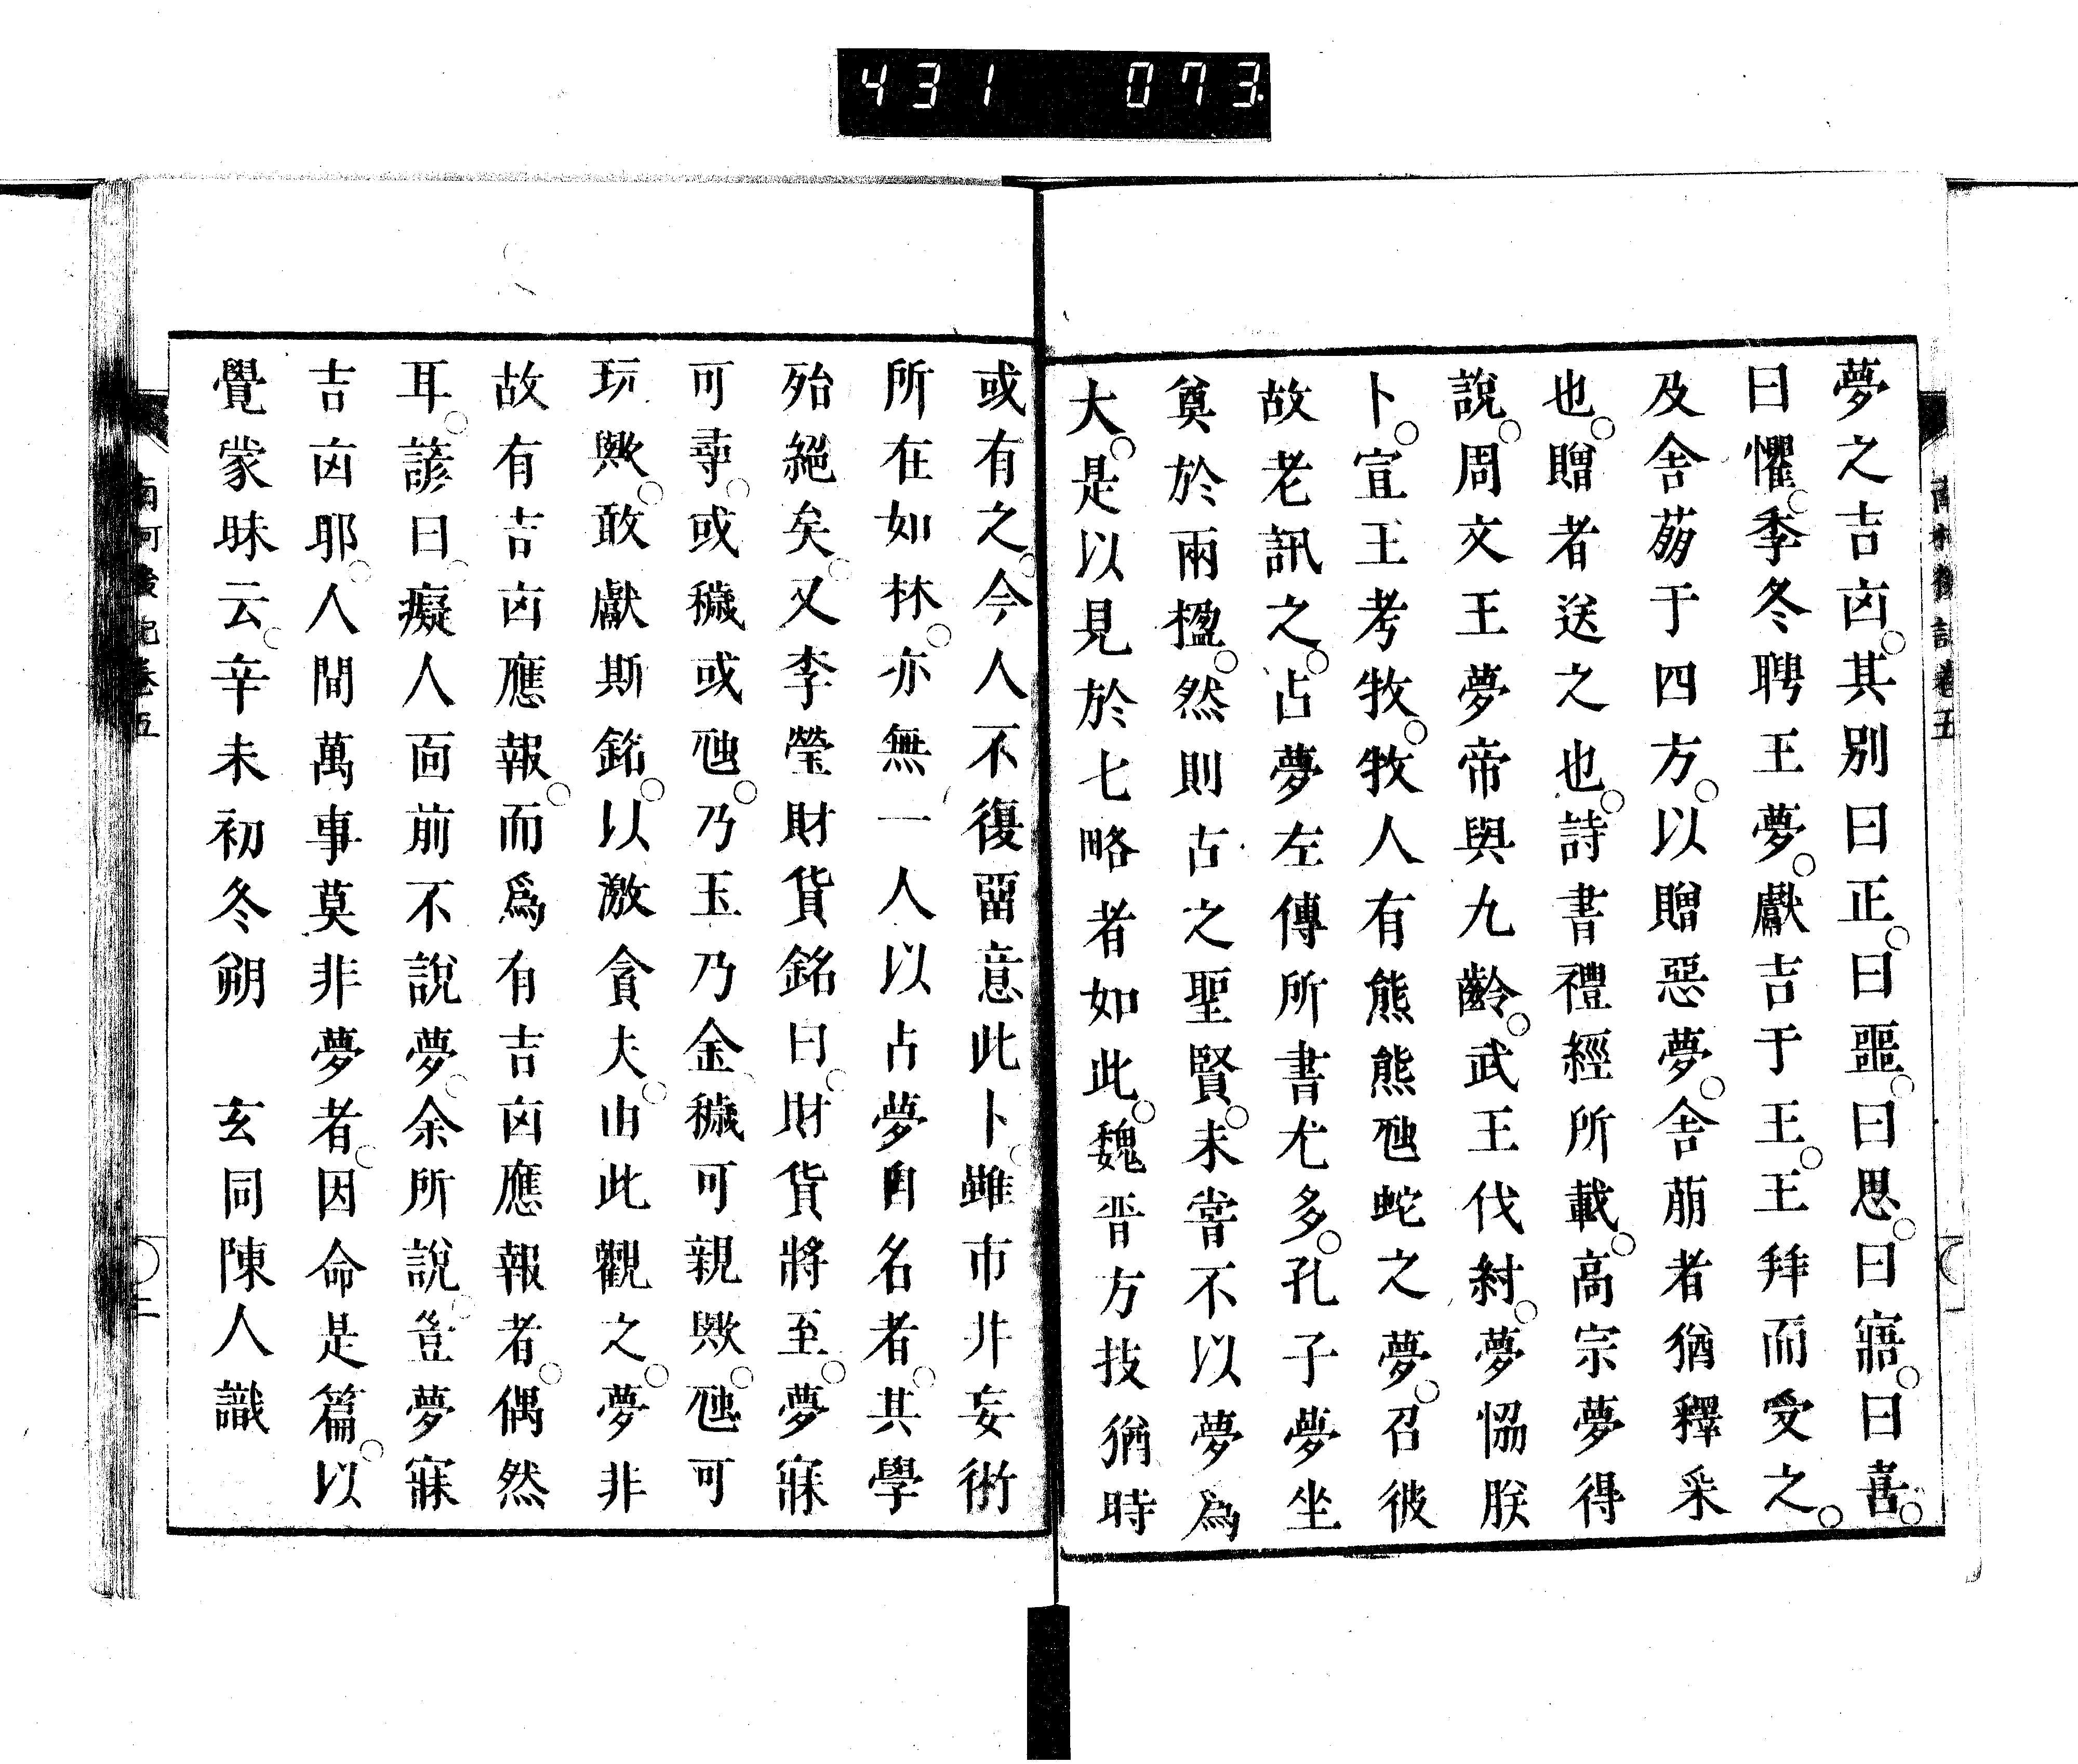 431 073.
夢之吉㐫。其別曰正。曰噩。曰思。曰寤。曰喜。
曰懼。季冬聘王夢。獻吉于王。王拜而受之。
及舍萠于四方。以贈惡夢。舍萠者猶釋采
也。贈者送之也。詩書禮經所載。高宗夢得
說。周文王夢帝與九齡。武王伐紂。夢恊朕
卜。宣王考牧。牧人有熊熊虵蛇之夢。召彼
故老訊之。占夢左傳所書尤多。孔子夢坐
奠於兩楹。然則古之聖賢。未嘗不以夢爲
大。是以見於七略者如此。魏晋方技猶時
或有之。今人不復畱意此卜。雖市井妄術
所在如林。亦無一人以占夢自名者。其學
殆絕矣。又李瑩財貨銘曰。財貨將至。夢寐
可尋。或穢或虵。乃玉乃金。穢可親歟。虵可
玩歟。敢獻斯銘。以激貪夫。由此觀之。夢非
故有吉㐫應報。而爲有吉㐫應報者。偶然
耳。諺曰。癡人面前不說夢。余所說。豈夢寐
吉㐫耶。人間萬事莫非夢者。因命是篇。以
覺蒙昧云。辛未初冬朔　玄同陳人識
卷五
二